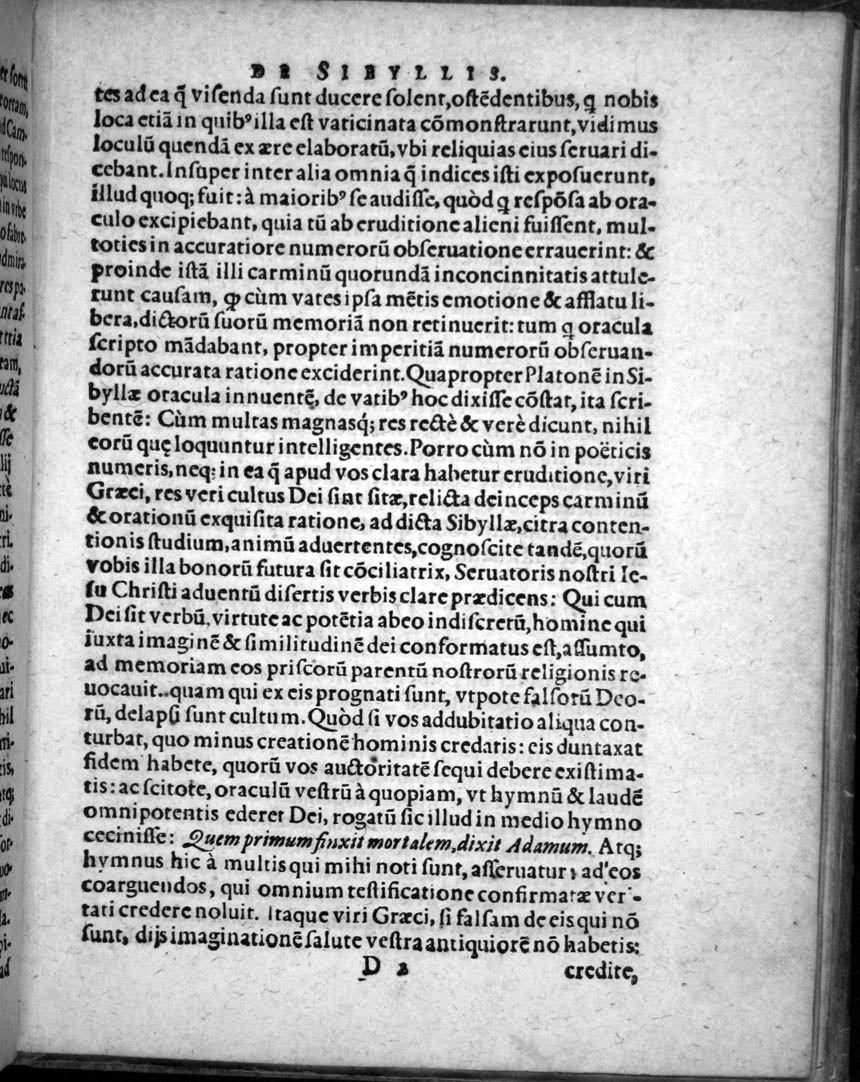 DE SIBYLLIS.
tes ad ea q̃ viſenda ſunt ducere ſolent, oſtẽdentibus, q̃ nobis
loca etiã in quibꝰ illa eſt vaticinata cõmonſtrarunt, vidimus
loculũ quendã ex ære elaboratũ, vbi reliquias eius ſeruari di-
cebant. Inſuper inter alia omnia q̃ indices iſti expoſuerunt,
illud quoq; fuit: à maioribꝰ ſe audiſſe, quòd q̃ reſpõſa ab ora-
culo excipiebant, quia tũ ab eruditione alieni fuiſſent, mul-
toties in accuratiore numerorũ obſeruatione errauerint: &
proinde iſtã illi carminũ quorundã inconcinnitatis attule-
runt cauſam, ꝙ cùm vates ipſa mẽtis emotione & afflatu li-
bera, dictorũ ſuorũ memoriã non retinuerit: tum q̃ oracula
ſcripto mãdabant, propter imperitiã numerorũ obſeruan-
dorũ accurata ratione exciderint. Quapropter Platonẽ in Si-
byllæ oracula innuentẽ, de vatibꝰ hoc dixiſſe cõſtat, ita ſcri-
bentẽ: Cùm multas magnasq́; res rectè & verè dicunt, nihil
eorũ quę loquuntur intelligentes. Porro cùm nõ in poëticis
numeris, neq; in ea q̃ apud vos clara habetur eruditione, viri
Græci, res veri cultus Dei ſint ſitæ, relicta deinceps carminũ
& orationũ exquiſita ratione, ad dicta Sibyllæ, citra conten-
tionis ſtudium, animũ aduertentes, cognoſcite tandẽ, quorũ
vobis illa bonorũ futura ſit cõciliatrix, Seruatoris noſtri Ie-
ſu Chriſti aduentũ diſertis verbis clare prædicens: Qui cum
Dei ſit verbũ, virtute ac potẽtia ab eo indiſcretũ, homine qui
iuxta imaginẽ & ſimilitudinẽ dei conformatus eſt, aſſumto,
ad memoriam eos priſcorũ parentũ noſtrorũ religionis re-
uocauit. quam qui ex eis prognati ſunt, vtpote falſorũ Deo-
rũ, delapſi ſunt cultum. Quòd ſi vos addubitatio aliqua con-
turbat, quo minus creationẽ hominis credatis: eis duntaxat
fidem habete, quorũ vos auctoritatẽ ſequi debere exiſtima-
tis: ac ſcitote, oraculũ veſtrũ à quopiam, vt hymnũ & laudẽ
omnipotentis ederet Dei, rogatũ ſic illud in medio hymno
ceciniſſe: Quem primum finxit mortalem, dixit Adamum. Atq;
hymnus hic à multis qui mihi noti ſunt, aſſeruatur, ad eos
coarguendos, qui omnium teſtificatione confirmatæ veri-
tati credere noluit. Itaque viri Græci, ſi falſam de eis qui nõ
ſunt, dijs imaginationẽ ſalute veſtra antiquiorẽ nõ habetis:
D 2 credite,